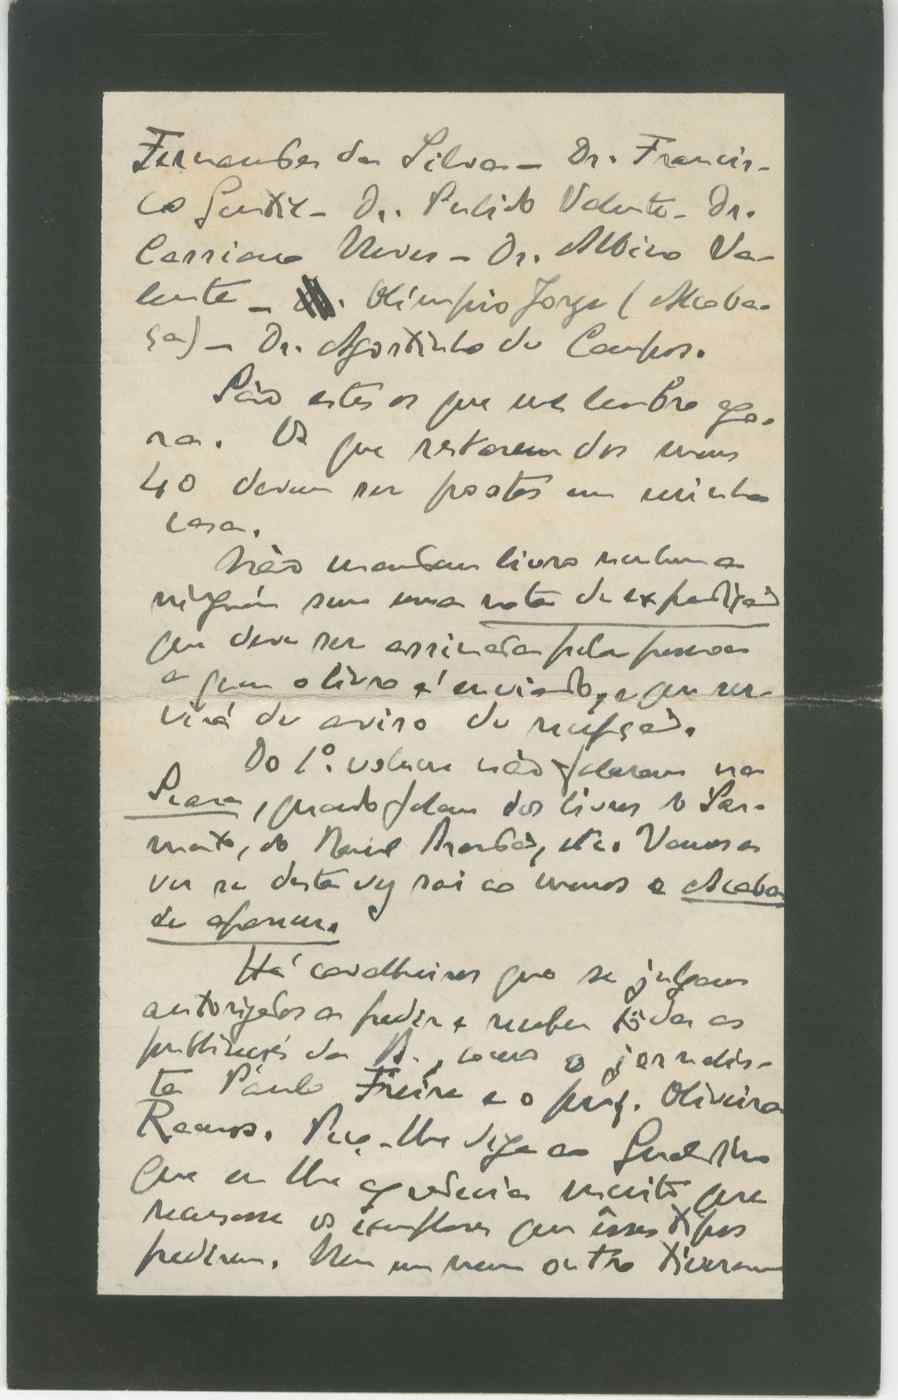 Fernandes da Silva — Dr. Francis-
co Gentil — Dr. Pulido Valente — Dr.
Carriano Neves — Dr. Albino Va-
lente — Olímpio Jorge (Alcoba-
ça) — Dr. Agostinho de Campos.
São estes os que me lembro ago-
ra. Os que restarem dos meus
40 devem ser postos em minha
casa.
Não mandem livro nenhum a
ninguém sem uma nota de expedição
que deve ser assinada pela pessoa
a quem o livro é enviado, e que ser-
virá de aviso de recepção.
Do 1º. volume não falaram na
Seara, quando falam dos livros do Sar-
mento, do Brandão, etc. Vamos a
ver se desta vez sai ao menos o Acaba
de aparecer.
Há cavalheiros que se julgam
autorizados a pedir e receber tôdas as
publicações da B., como o jornalis-
ta Paulo Freire e o prof. Oliveira
Ramos. Peço-lhe diga ao
que eu lhe agradecia muito que
recusasse os exemplares que êsses tipos
pedirem. Nem um nem outro tiveram